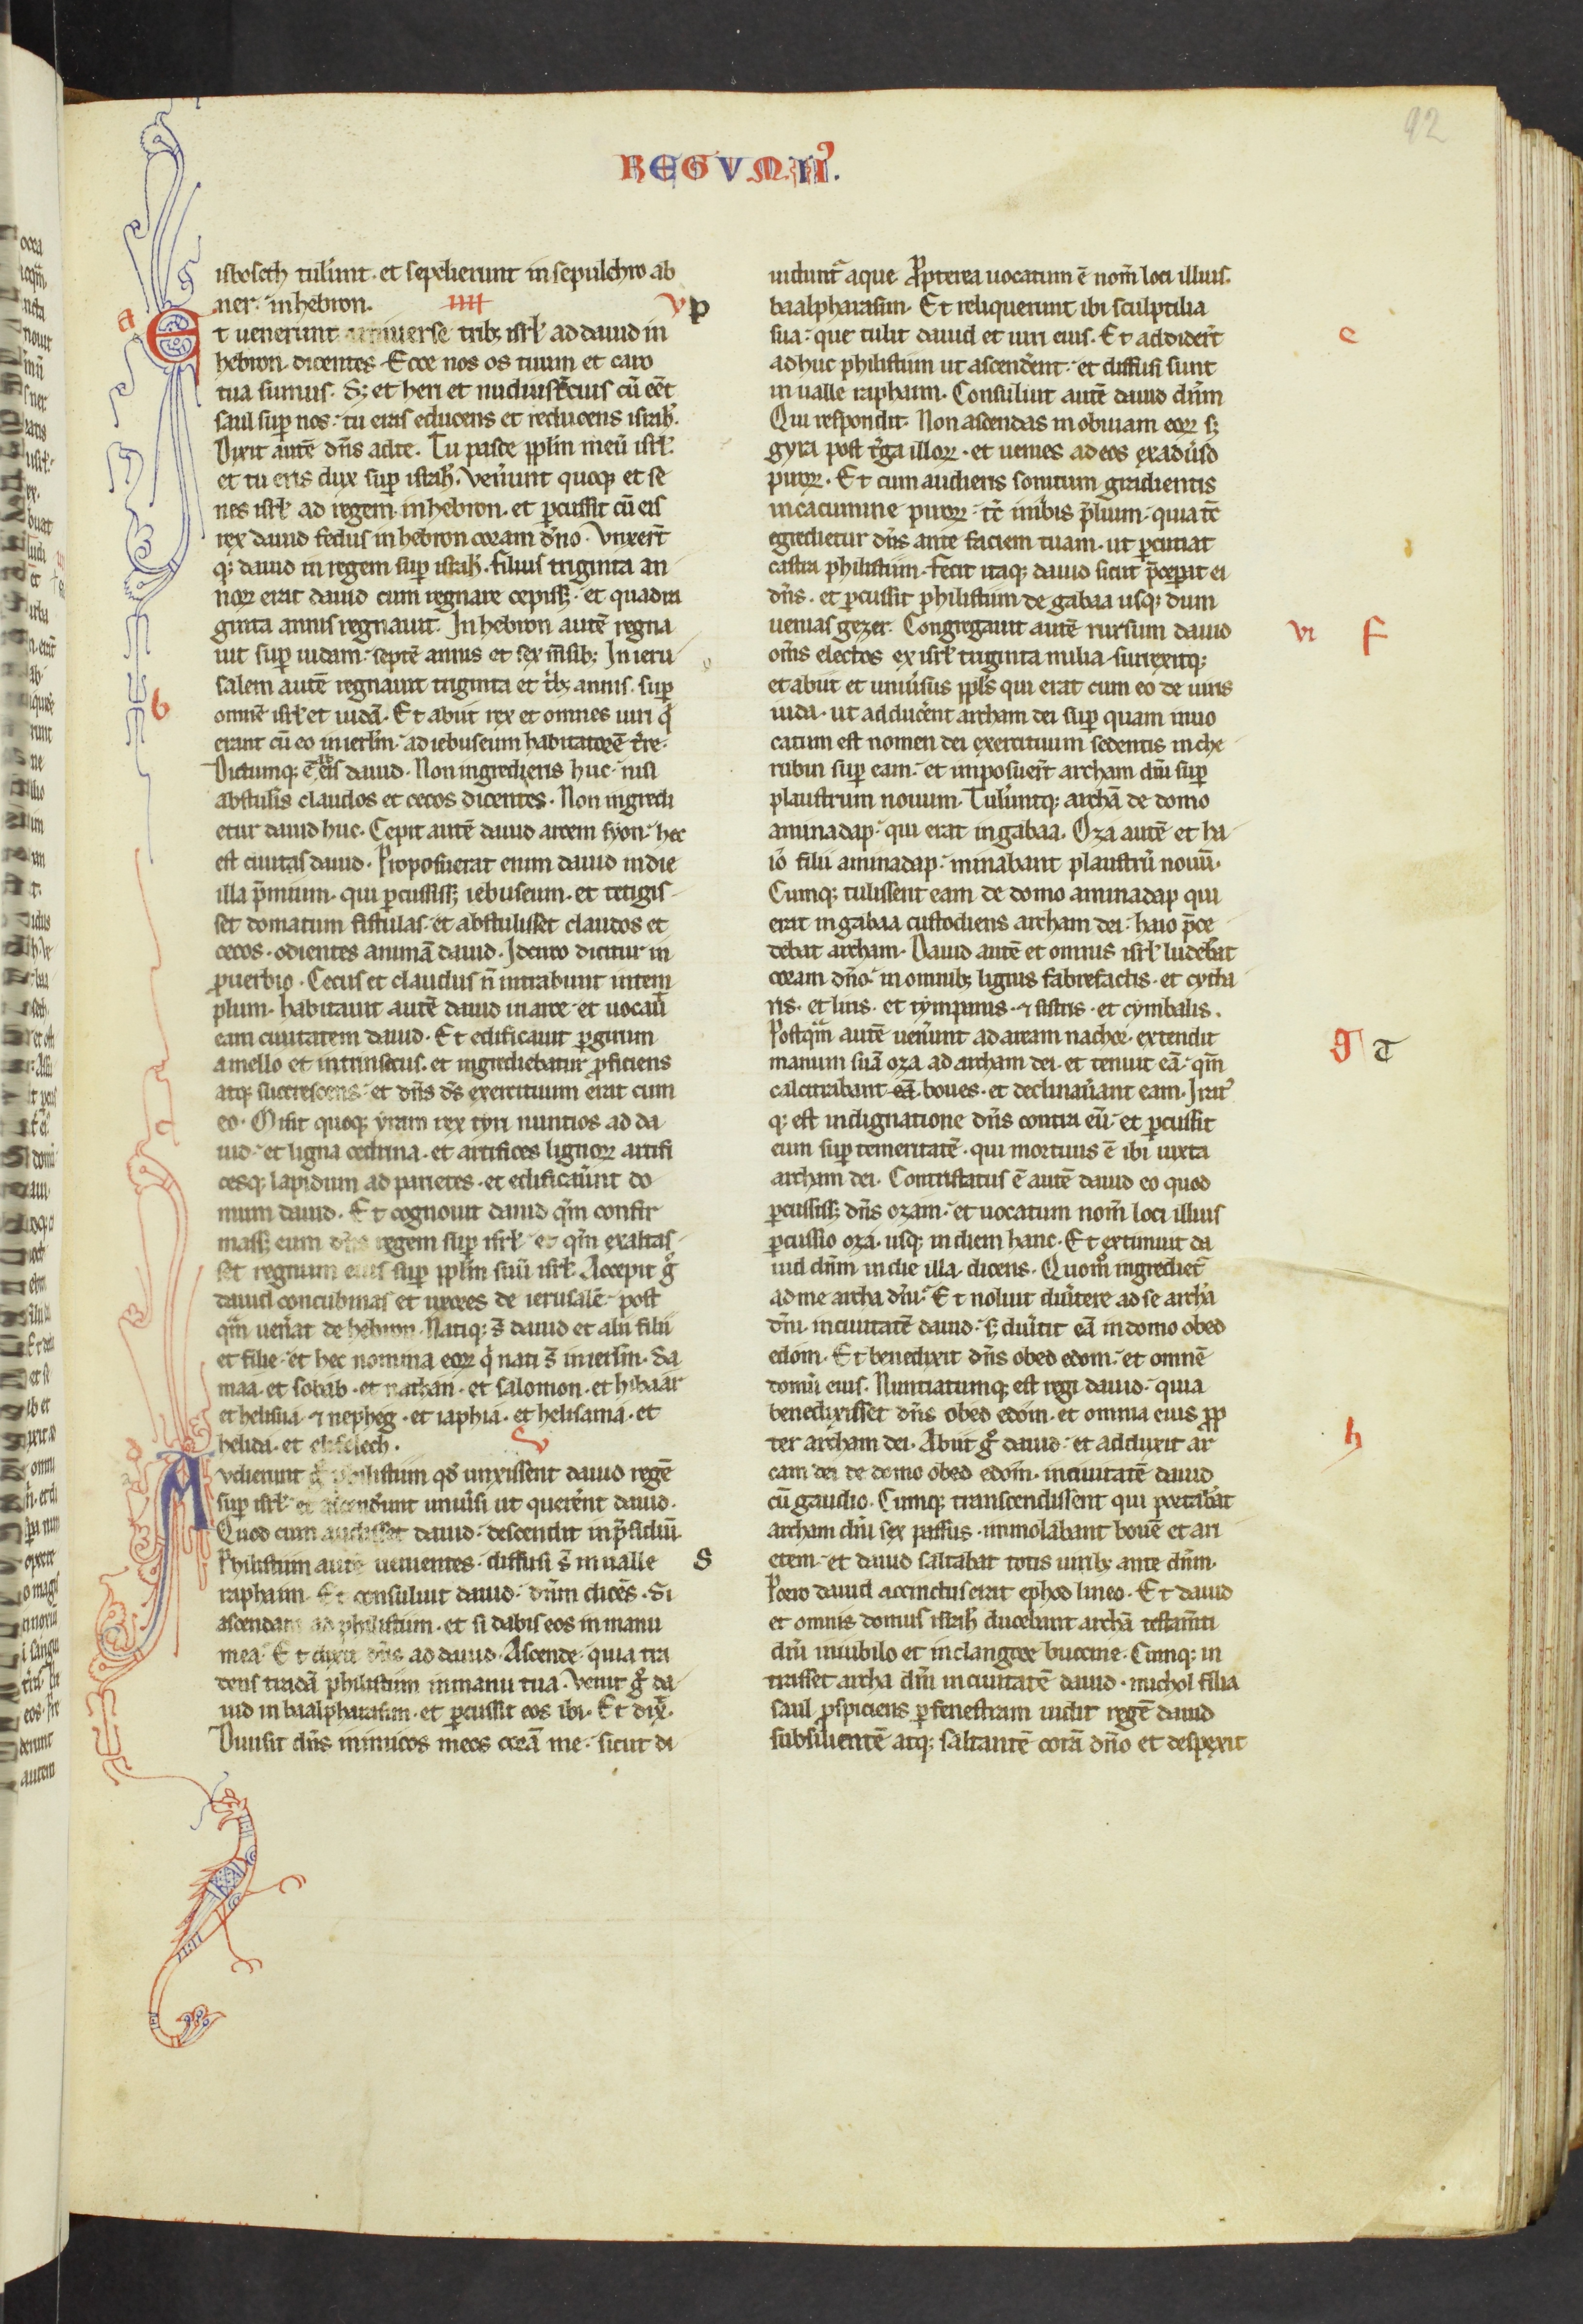 92
REGVM. II.
isboseth tulerūt. et sepelierunt in sepulchro ab
ner. in hebron. IIII v p
a Et uenerunt uniuerse tribꝫ isrl' ad dauid in
hebron. dicentes. Ecce nos os tuum et caro
tua sumus. Sꝫ et heri et nudiustercius cū eēt
saul sup nos. tu eras educens et reducens israhl'.
Dixit autē dn̄s ad te. Tu pasce pplm meū isrl'.
et tu eris dux sup israhl'. Venerunt quoqꝫ et se
nes isrl' ad regem in hebron. et percussit cū eis
rex dauid fedus in hebron coram dn̄o. Vnxert̄
qꝫ dauid in regem sup israhl'. Filius triginta an
noꝝ erat dauid cum regnare cepissꝫ. et quadra
ginta annis regnauit. In hebron autē regna
uit sup iudam. septē annis et sex m̄sibꝫ. In ieru
salem autē regnauit triginta et tribꝫ annis. sup
b omnē isrl' et iudā. Et abiit rex et omnes uiri q̄
erant cū eo in ierlm̄. ad iebuseum habitatorē t̄re.
Dictumqꝫ ē ab eis dauid. Non ingredieris huc. nisi
abstuleris claudos et cecos dicentes. Non ingredi
etur dauid huc. Cepit autē dauid arcem syon. hec
est ciuitas dauid. Proposuerat enim dauid in die
illa p̄mium. qui percussissꝫ iebuseum. et tetigis
set domatum fistulas. et abstulisset claudos et
cecos. odientes animā dauid. Idcirco dicitur in
prouerbio. Cecus et claudus n̄ intrabunt in tem
plum. habitauit autē dauid in arce. et uocauit
eam ciuitatem dauid. Et edificauit p girum
a mello et intrinsecus. et ingrediebatur proficiens
atqꝫ succrescens. et dn̄s ds̄ exercituum erat cum
eo. Misit quoqꝫ yram rex tyri nuntios ad da
uid. et ligna cedrina. et artifices lignoꝝ artifi
cesqꝫ lapidium ad parietes. et edificauerūt do
mum dauid. Et cognouit dauid qm̄ confir
massꝫ eum dn̄s regem sup isrl'. et qm̄ exaltas
set regnum eius sup pplm suū isrl'. Accepit ḡ
dauid concubinas et uxores de ierusalē. post
qm̄ uenerat de hebron. Natiqꝫ s̄ dauid et alii filii
et filie. et hec nomina eoꝝ q̄ nati s̄ in ierlm̄. Sa
maa. et sobab. et nathan. et salomon. et hibaar
et helisua. ⁊ nepheg. et iaphia. et helisama. et
helida. et elifelech. v
Avdierunt ḡ philistiim qd̄ unxissent dauid regē
sup isrl'. et ascenderūt uniuersi ut quererent dauid.
Quod cum audisset dauid. descendit in p̄sidiū.
Philistiim autē uenientes. diffusi s̄ in ualle S
raphaim. Et consuluit dauid. dn̄m dicēs. Si
ascendam ad philistiim. et si dabis eos in manu
mea. Et dixit dn̄s ad dauid. Ascende. quia tra
dens tradā philistiim in manu tua. Venit ḡ da
uid in baalpharasim. et percussit eos ibi. Et dix̄.
Diuisit dn̄s inimicos meos corā me. sicut di
uidunt̄ aque. Propterea uocatum ē nom̄ loci illius.
baalpharasim. Et reliquerunt ibi sculptilia
sua. que tulit dauid et uiri eius. Et addidert̄ e
adhuc philistiim ut ascenderent. et diffusi sunt
in ualle raphaim. Consuluit autē dauid dn̄m
Qui respondit. Non ascendas in obuiam eoꝝ sꝫ
gyra post terga illoꝝ. et uenies ad eos ex aduerso
piroꝝ. Et cum audieris sonitum gradientis
in cacumine piroꝝ. tc̄ inibis p̄lium. quia tc̄
egredietur dn̄s ante faciem tuam. ut percutiat
castra philistiim. Fecit itaqꝫ dauid sicut p̄ceperat ei
dn̄s. et percussit philistiim de gabaa usqꝫ dum
uenias gezer. Congregauit autē rursum dauid vi f
om̄s electos ex isrl' triginta milia. surrexitqꝫ
et abiit et uniuersus ppl's qui erat cum eo de uiris
iuda. ut adducerent archam dei sup quam inuo
catum est nomen dei exercituum sedentis in che
rubin sup eam. et imposuert̄ archam dn̄i sup
plaustrum nouum. Tuleruntqꝫ archā de domo
aminadap. qui erat in gabaa. Oza autē et ha
io filii aminadap. minabant plaustrū nouū.
Cumqꝫ tulissent eam de domo aminadap qui
erat in gabaa custodiens archam dei. haio p̄ce
debat archam. Dauid autē et omnis isrl' ludebāt
coram dn̄o. in omnibꝫ lignis fabrefactis. et cytha
ris. et liris. et tympanis. ⁊ sistris. et cymbalis.
Postqm̄ autē uenerunt ad aream nachor. extendit g T
manum suā oza ad archam dei. et tenuit eā. qm̄
calcitrabant eā boues. et declinauerant eam. Irat'
qꝫ est indignatione dn̄s contra eū. et percussit
eum sup temeritatē. qui mortuus ē ibi iuxta
archam dei. Contristatus ē autē dauid eo quod
percussissꝫ dn̄s ozam. et uocatum nom̄ loci illius
percussio oza. usqꝫ in diem hanc. Et extimuit da
uid dn̄m in die illa. dicens. Quom̊ ingrediet̄
ad me archa dn̄i. Et noluit diuertere ad se archā
dn̄i. in ciuitatē dauid. sꝫ diuertit eā in domo obed
edom. Et benedixit dn̄s obed edom. et omnē
domū eius. Nuntiatumqꝫ est regi dauid. quia
benedixisset dn̄s obed edom. et omnia eius prop
ter archam dei. Abiit ḡ dauid. et adduxit ar h
cam dei de domo obed edom. in ciuitatē dauid
cū gaudio. Cumqꝫ transcendissent qui portabāt
archam dn̄i sex passus. immolabant bouē et ari
etem. et dauid saltabat totis uiribꝫ ante dn̄m.
Porro dauid accinctus erat ephod lineo. Et dauid
et omnis domus israhl' ducebant archā testam̄ti
dn̄i in iubilo et in clangore buccine. Cumqꝫ in
trasset archa dn̄i in ciuitatē dauid. michol filia
saul prospiciens per fenestram uidit regē dauid
subsilientē atqꝫ saltantē corā dn̄o et despexit